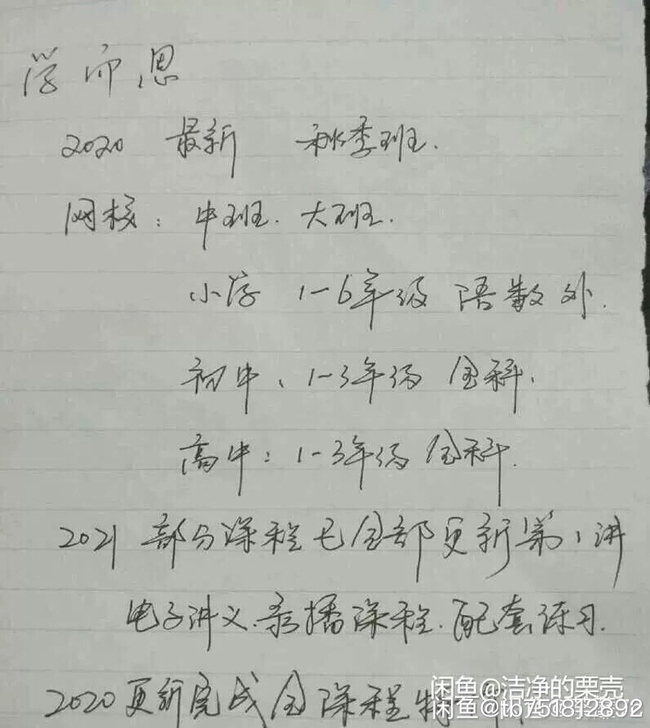 学而思
2020 最新 秋季班.
网校: 中班. 大班.
小学 1-6年级 语数外.
初中: 1-3年级 全科.
高中: 1-3年级 全科.
2021 部分课程已全部更新第1讲
电子讲义.录播课程.配套练习.
2020更新完成全课程
闲鱼@洁净的栗壳
闲鱼@